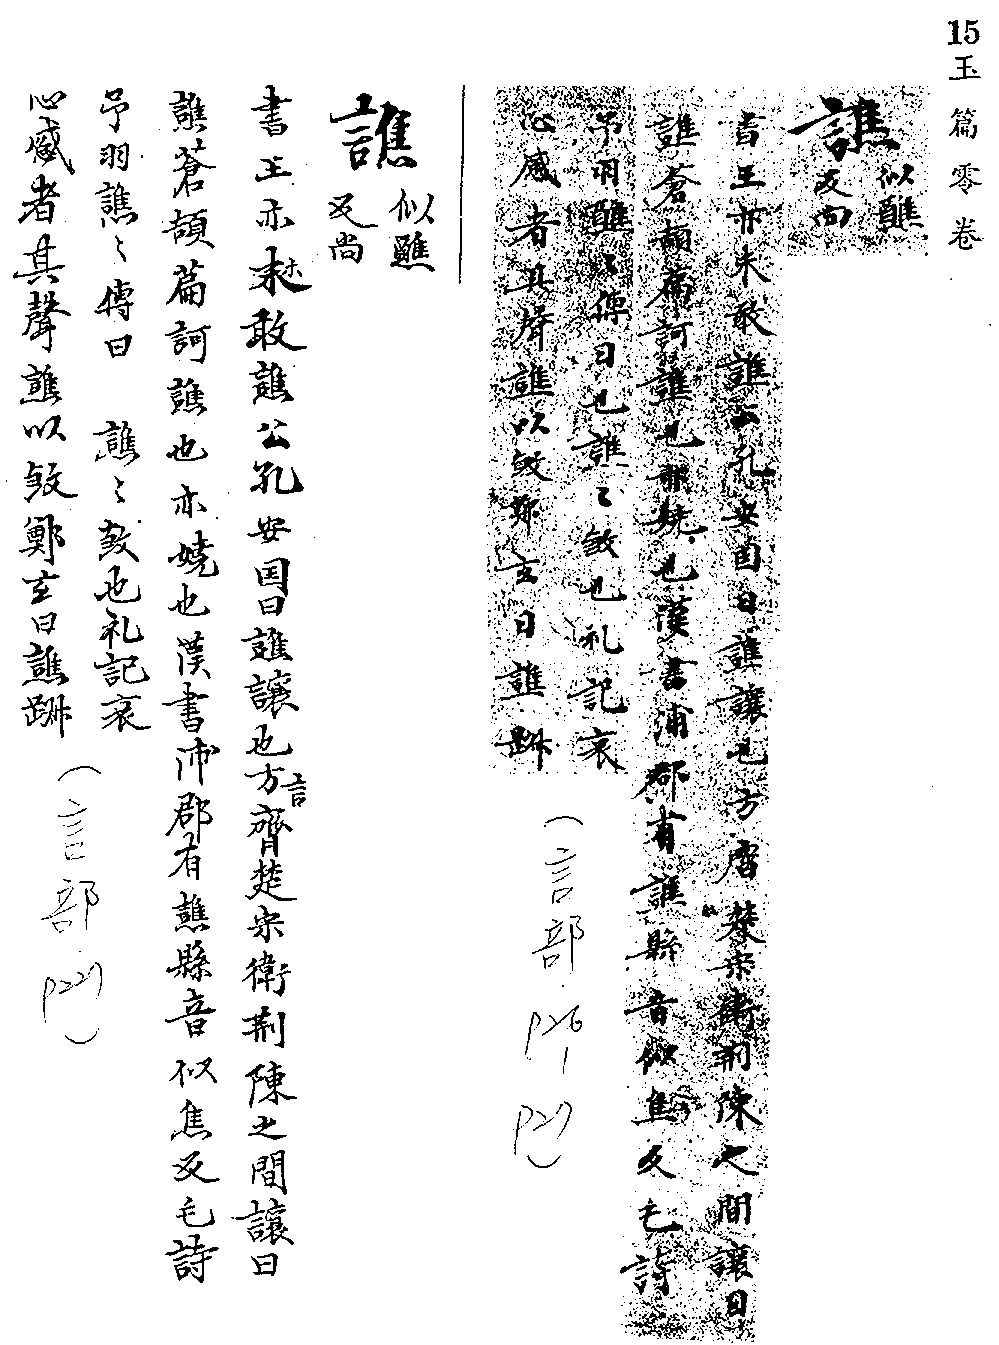 15玉篇零卷
譙似醮反尚
書王亦未敢譙公孔安囯曰譙讓也方言齊楚宋衛荆陳之間讓曰
譙蒼頡篇訶譙也亦嬈也漢書沛郡有譙縣音似焦反毛詩
予羽譙〻傳曰也譙〻敓也礼記哀
心感者其聲譙以敓玄曰譙踧
(言部.P26-P27)
譙似醮反尚
書王亦未敢譙公孔安囯曰譙讓也方言齊楚宋衛荆陳之間讓曰
譙蒼頡篇訶譙也亦嬈也漢書沛郡有譙縣音似焦反毛詩
予羽譙〻傳曰 譙〻敓也礼記哀
心感者其聲譙以敓鄭玄曰譙踧
(言部.P227)